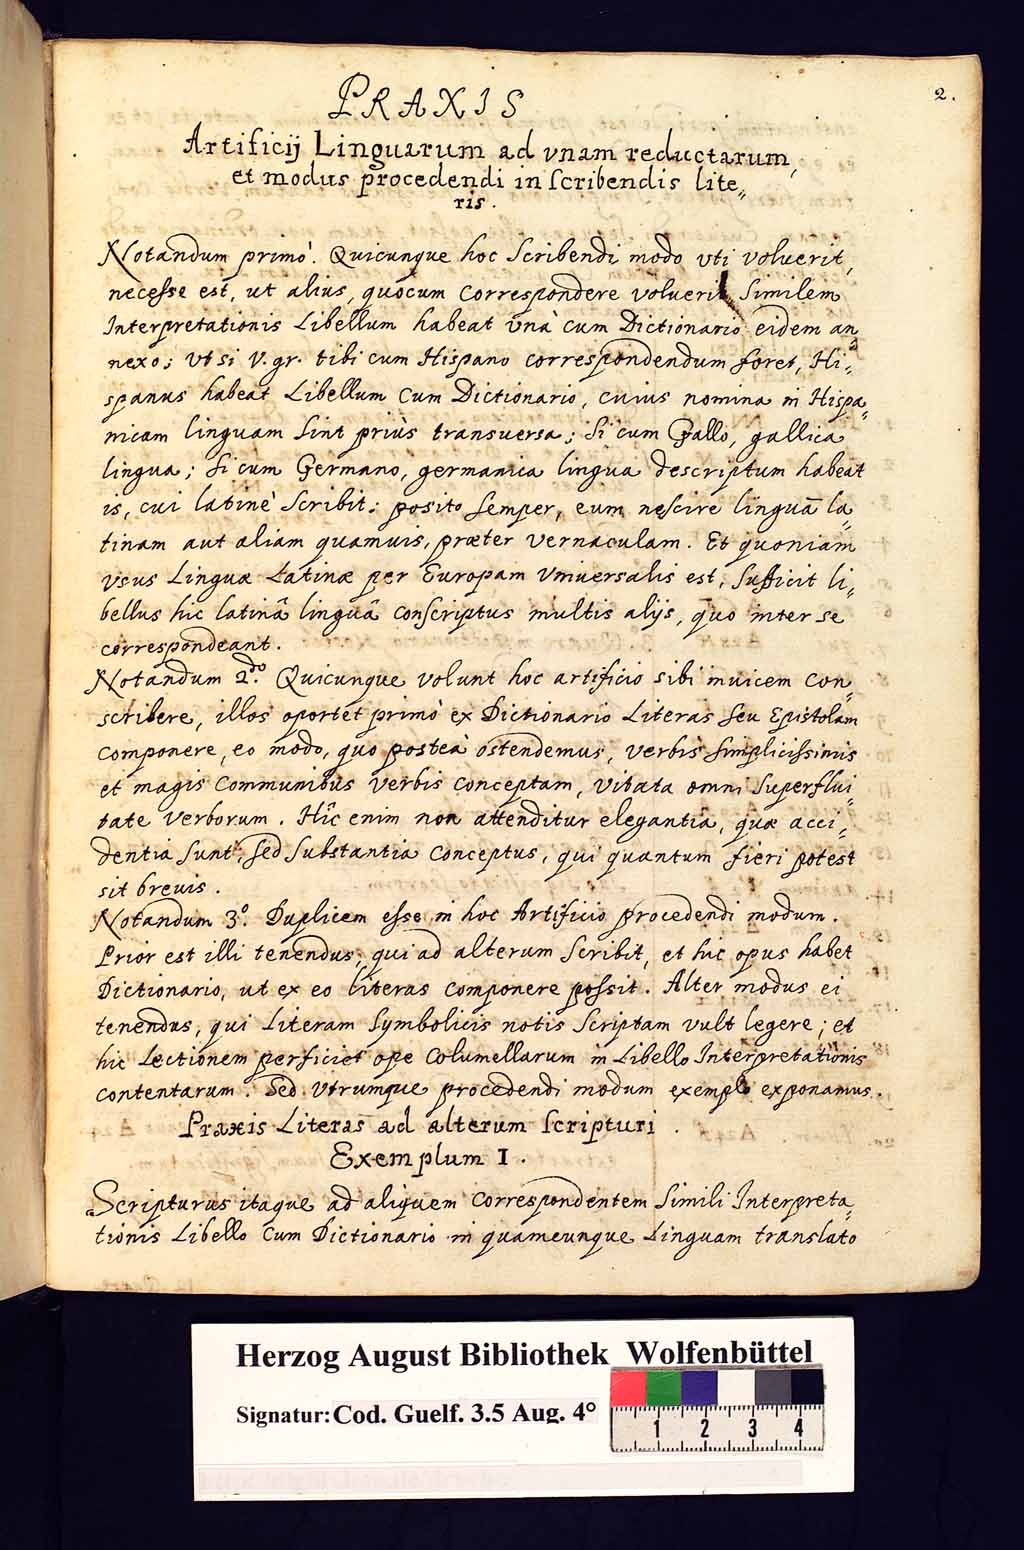 2.
PRAXIS
Artificij Linguarum ad vnam reductarum,
et modus procedendi in scribendis lite„
ris.
Notandum primò. Quicunque hoc scribendi modo vti voluerit,
necesse est, ut alius, quocum correspondere voluerit similem
Interpretationis Libellum habeat vnà cum Dictionario eidem an„
nexo; vt si v.gr. tibi cum Hispano correspondendum foret, Hi„
spanus habeat Libellum cum Dictionario, cuius nomina in Hispa„
nicam linguam sint priùs transuersa; si cum Gallo, gallica
lingua; si cum Germano, germanica lingua descriptum habeat
is, cui latinè scribit: posito semper, eum nescire linguā la„
tinam aut aliam quamuis, præter vernaculam. Et quoniam
vsus Linguæ Latinæ per Europam vniuersalis est, sufficit li„
bellus hic latinâ linguâ conscriptus multis alijs, quo inter se
correspondeant.
Notandum 2do. Quicunque volunt hoc artificio sibi inuicem con„
scribere, illos oportet primò ex Dictionario Literas seu Epistolam
componere, eo modo, quo posteà ostendemus, verbis simplicissimis
et magis communibus verbis conceptam, vitata omni superflui„
tate verborum. Hîc enim non attenditur elegantia, quæ acci„
dentia sunt, sed substantia conceptus, qui quantum fieri potest
sit breuis.
Notandum 3o. Duplicem esse in hoc Artificio procedendi modum.
Prior est illi tenendus, qui ad alterum scribit, et hic opus habet
Dictionario, ut ex eo literas componere possit. Alter modus ei
tenendus, qui Literam symbolicis notis scriptam vult legere; et
hic Lectionem perficiet ope columellarum in Libello Interpretationis
contentarum. Sed vtrumque procedendi modum exemplo exponamus.
Praxis Literas ad alterum scripturi.
Exemplum I.
Scripturus itaque ad aliquem correspondentem simili Interpreta„
tionis Libello cum Dictionario in quamcunque Linguam translato
Herzog August Bibliothek Wolfenbüttel
Signatur: Cod. Guelf. 3.5 Aug. 4°
1 2 3 4